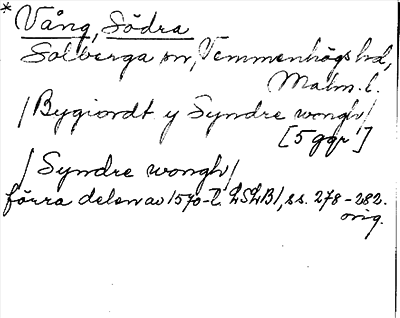 * Vång, Södra
Solberga sn, Vemmenhögs hd,
Malm. l.
/Bygiordt y Syndre wongh/
[5 ggr]
/Syndre wongh/
förra delen av 1570-t. LSLB/, ss. 278-282.
orig.